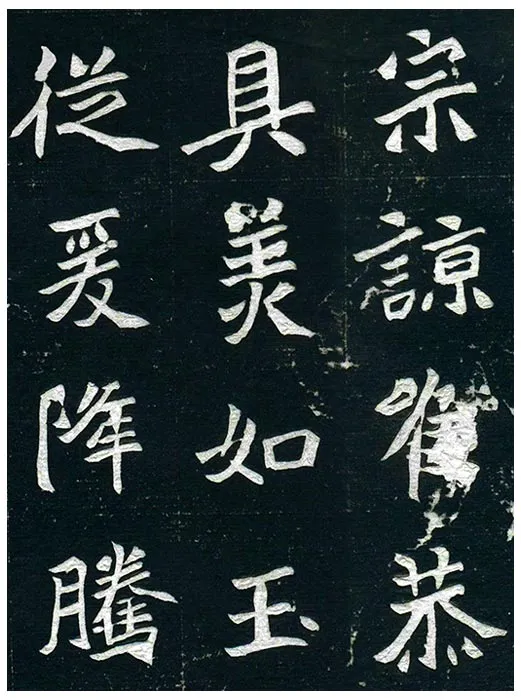 宗諒唯恭
具美如玉
從爰降騰